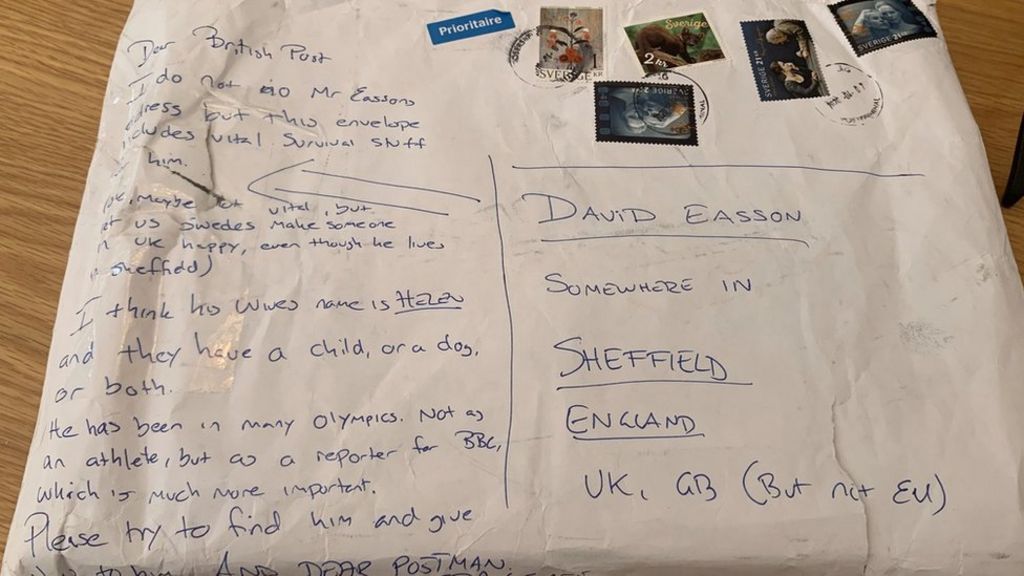 Prioritaire
SVERIGE
1
KR
Sverige
2
SVERIGE 21
SVERIGE 21
SVERIGE
Dear British Post
I do not no Mr Eassons
but this envelope
vital survival stuff
him.
maybe not vital, but
us Swedes make someone
UK happy, even though he lives
Sheffield)
I think his wives name is HELEN
and they have a child, or a dog,
or both.
He has been in many Olympics. Not as
an athlete, but as a reporter for BBC,
which is much more important.
Please try to find him and give
to him. AND DEAR POSTMAN.
DAVID EASSON
SOMEWHERE IN
SHEFFIELD
ENGLAND
UK, GB (But not EU)